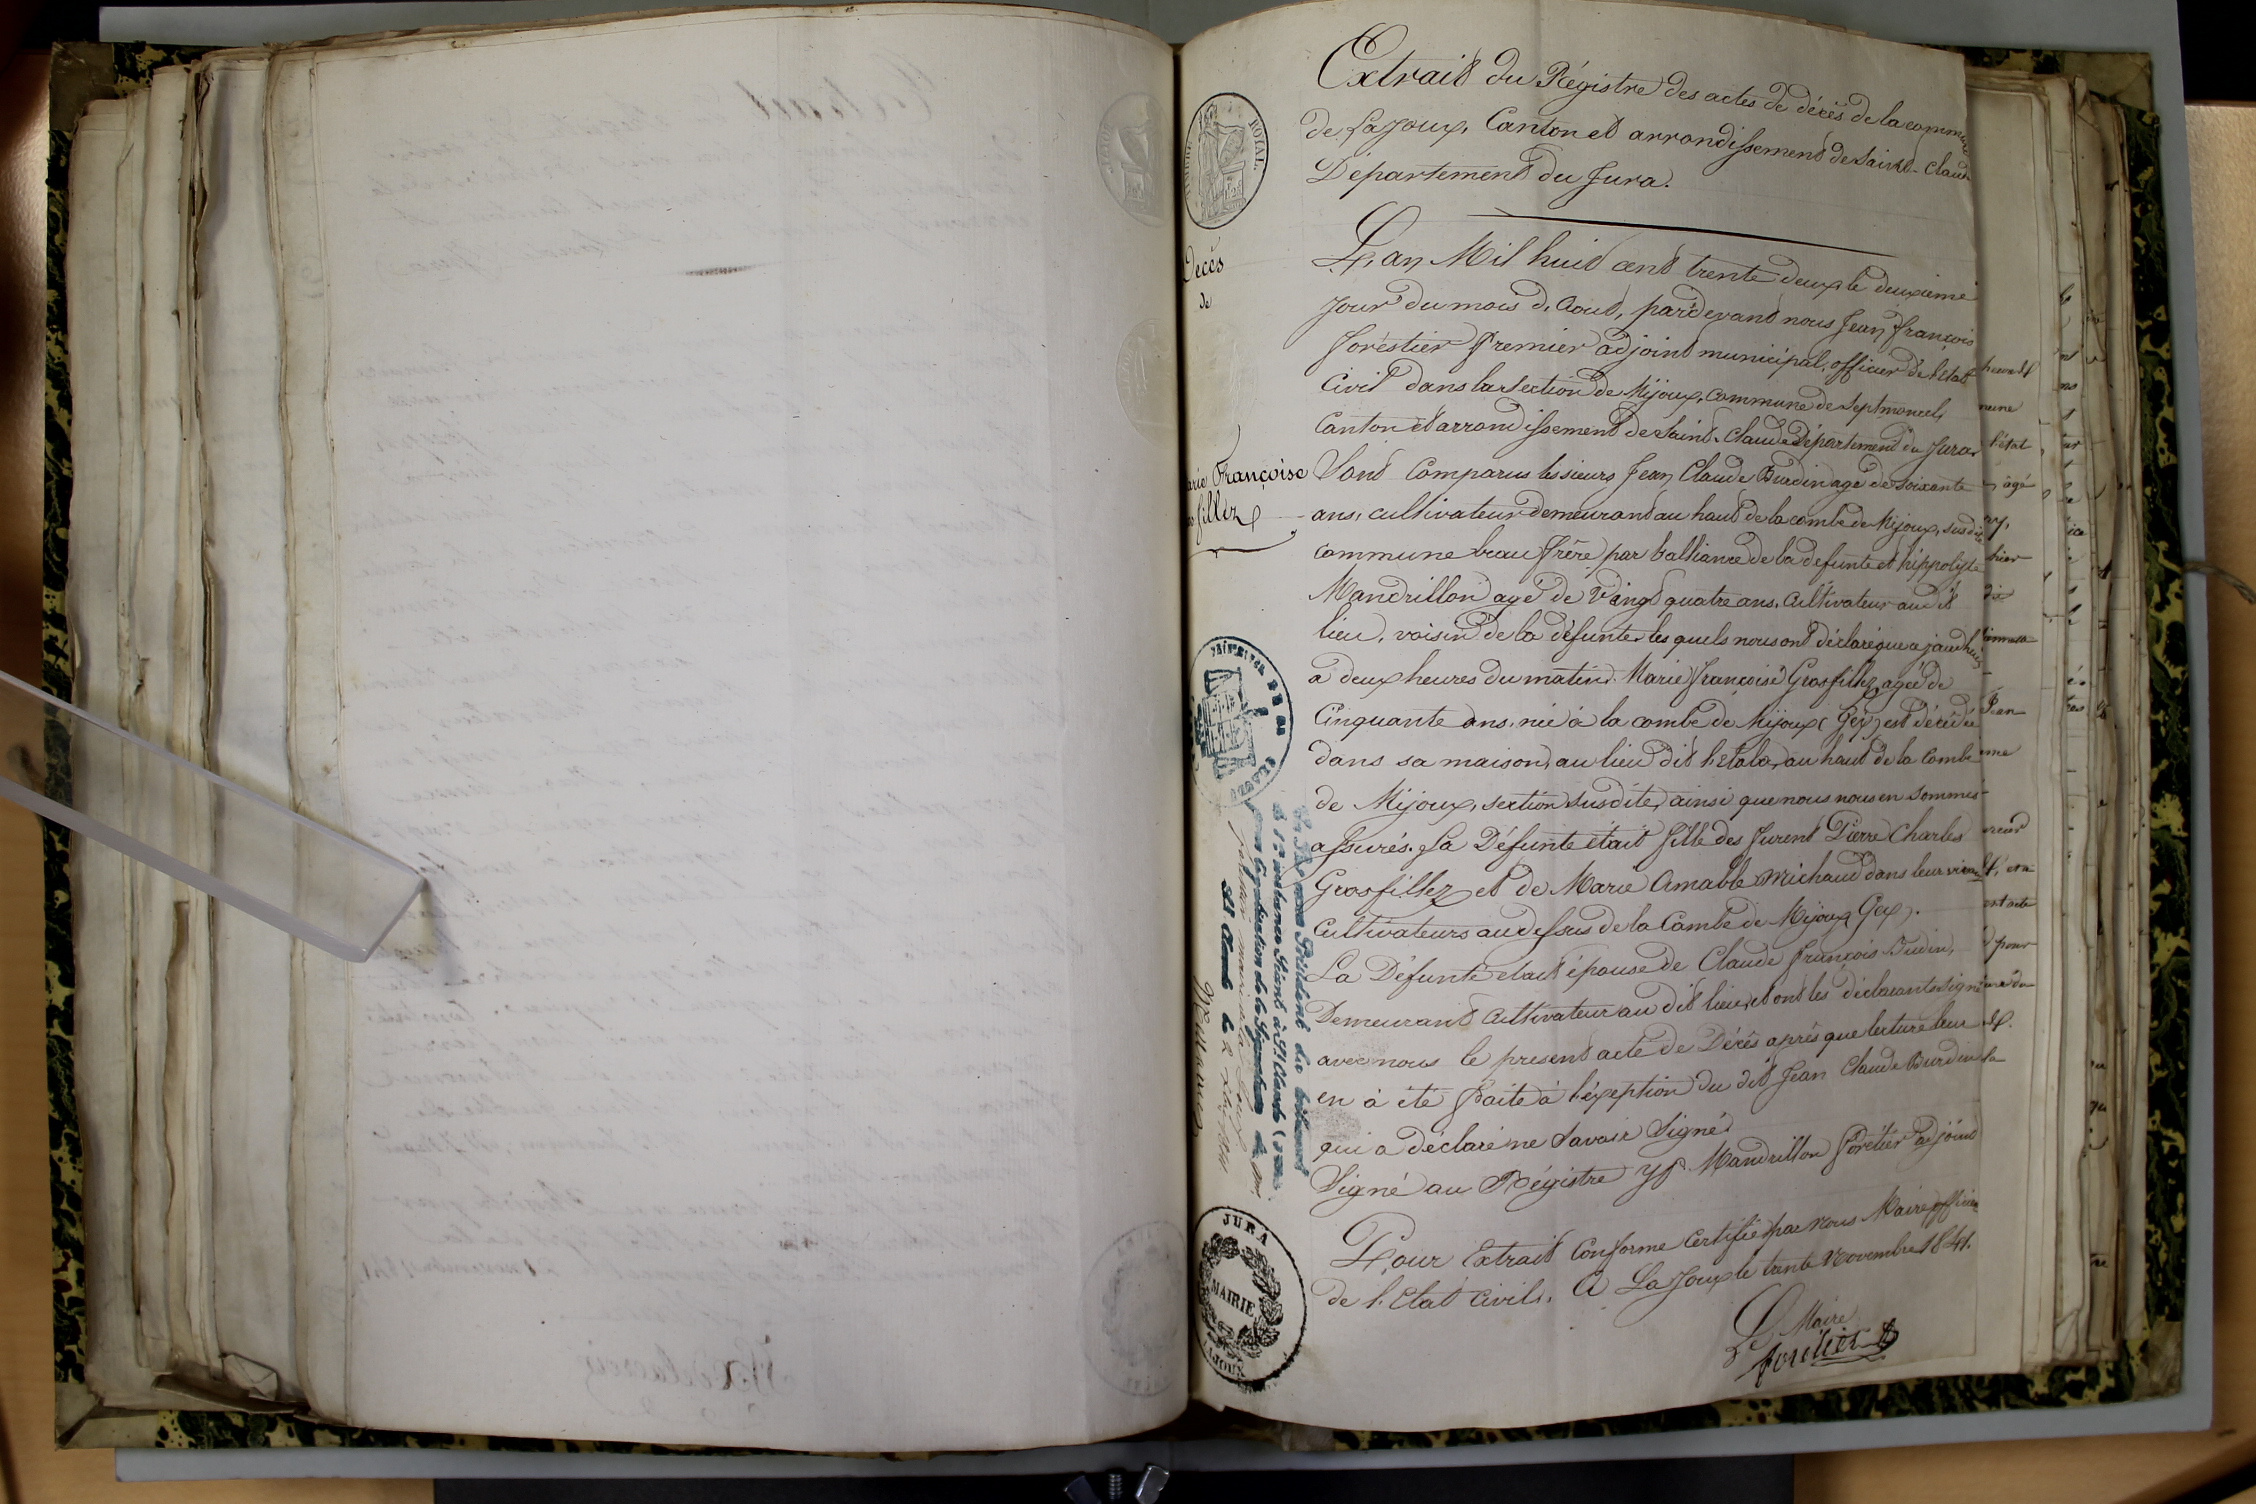 Extrait du Régistre des actes de décès de la commune
de Lajoux, Canton et arrondissement de Saint-Claude
Département du Jura.
TIMBRE ROYAL
Décès
de
Marie Françoise
Grosfillez
L'an Mil huit cent trente deux le deuxieme
jour du mois d'Aout, pardevant nous Jean françois
forestier premier adjoint municipal, officier de l'Etat
Civil dans la section de Mijoux, commune de Septmoncel,
Canton et arrondissement de Saint-Claude Département du Jura
Sont Comparus les sieurs Jean Claude Burdin agé de soixante
ans, cultivateur demeurant au haut de la combe de Mijoux, susdite
commune beau frère par l'alliance de la defunte et hippolyte
Mandrillon agé de Vingt quatre ans, Cultivateur au dit
lieu, voisin de la défunte, les quels nous ont déclaré que ajourdhui
a deux heures du matin. Marie françoise Grosfillez, agée de
Cinquante ans, née à la combe de Mijoux (Gex) est décédée
dans sa maison, au lieu dit l'Etala, au haut de la Combe
de Mijoux, section susdite, ainsi que nous nous en sommes
assurés. La Défunte était fille des furent Pierre Charles
Grosfillez et de Marie Amable Michaud dans leur vivant
Cultivateurs au dessus de la Combe de Mijoux Gex.
La Défunte etait épouse de Claude françois Budin,
Demeurant Cultivateur au dit lieu, et ont les déclarants signé
avec nous le present acte de Décès après que lecture leur
en à été faite à l'exeption du dit Jean Claude Burdin
qui a déclaré ne Savoir Signé.
Signé au Régistre Mandrillon forètier adjoint
Pour Extrait Conforme Certifié par Nous Maire officier
de l'Etat Civil. A LaJoux le trente Novembre 1841.
Le Maire
forètier
Président du tribunal
de 1re instance Séant à St Claude (Jura
pour légalisation de la Signature de Mr
St Claude le 2
JURA
MAIRIE
LAJOUX